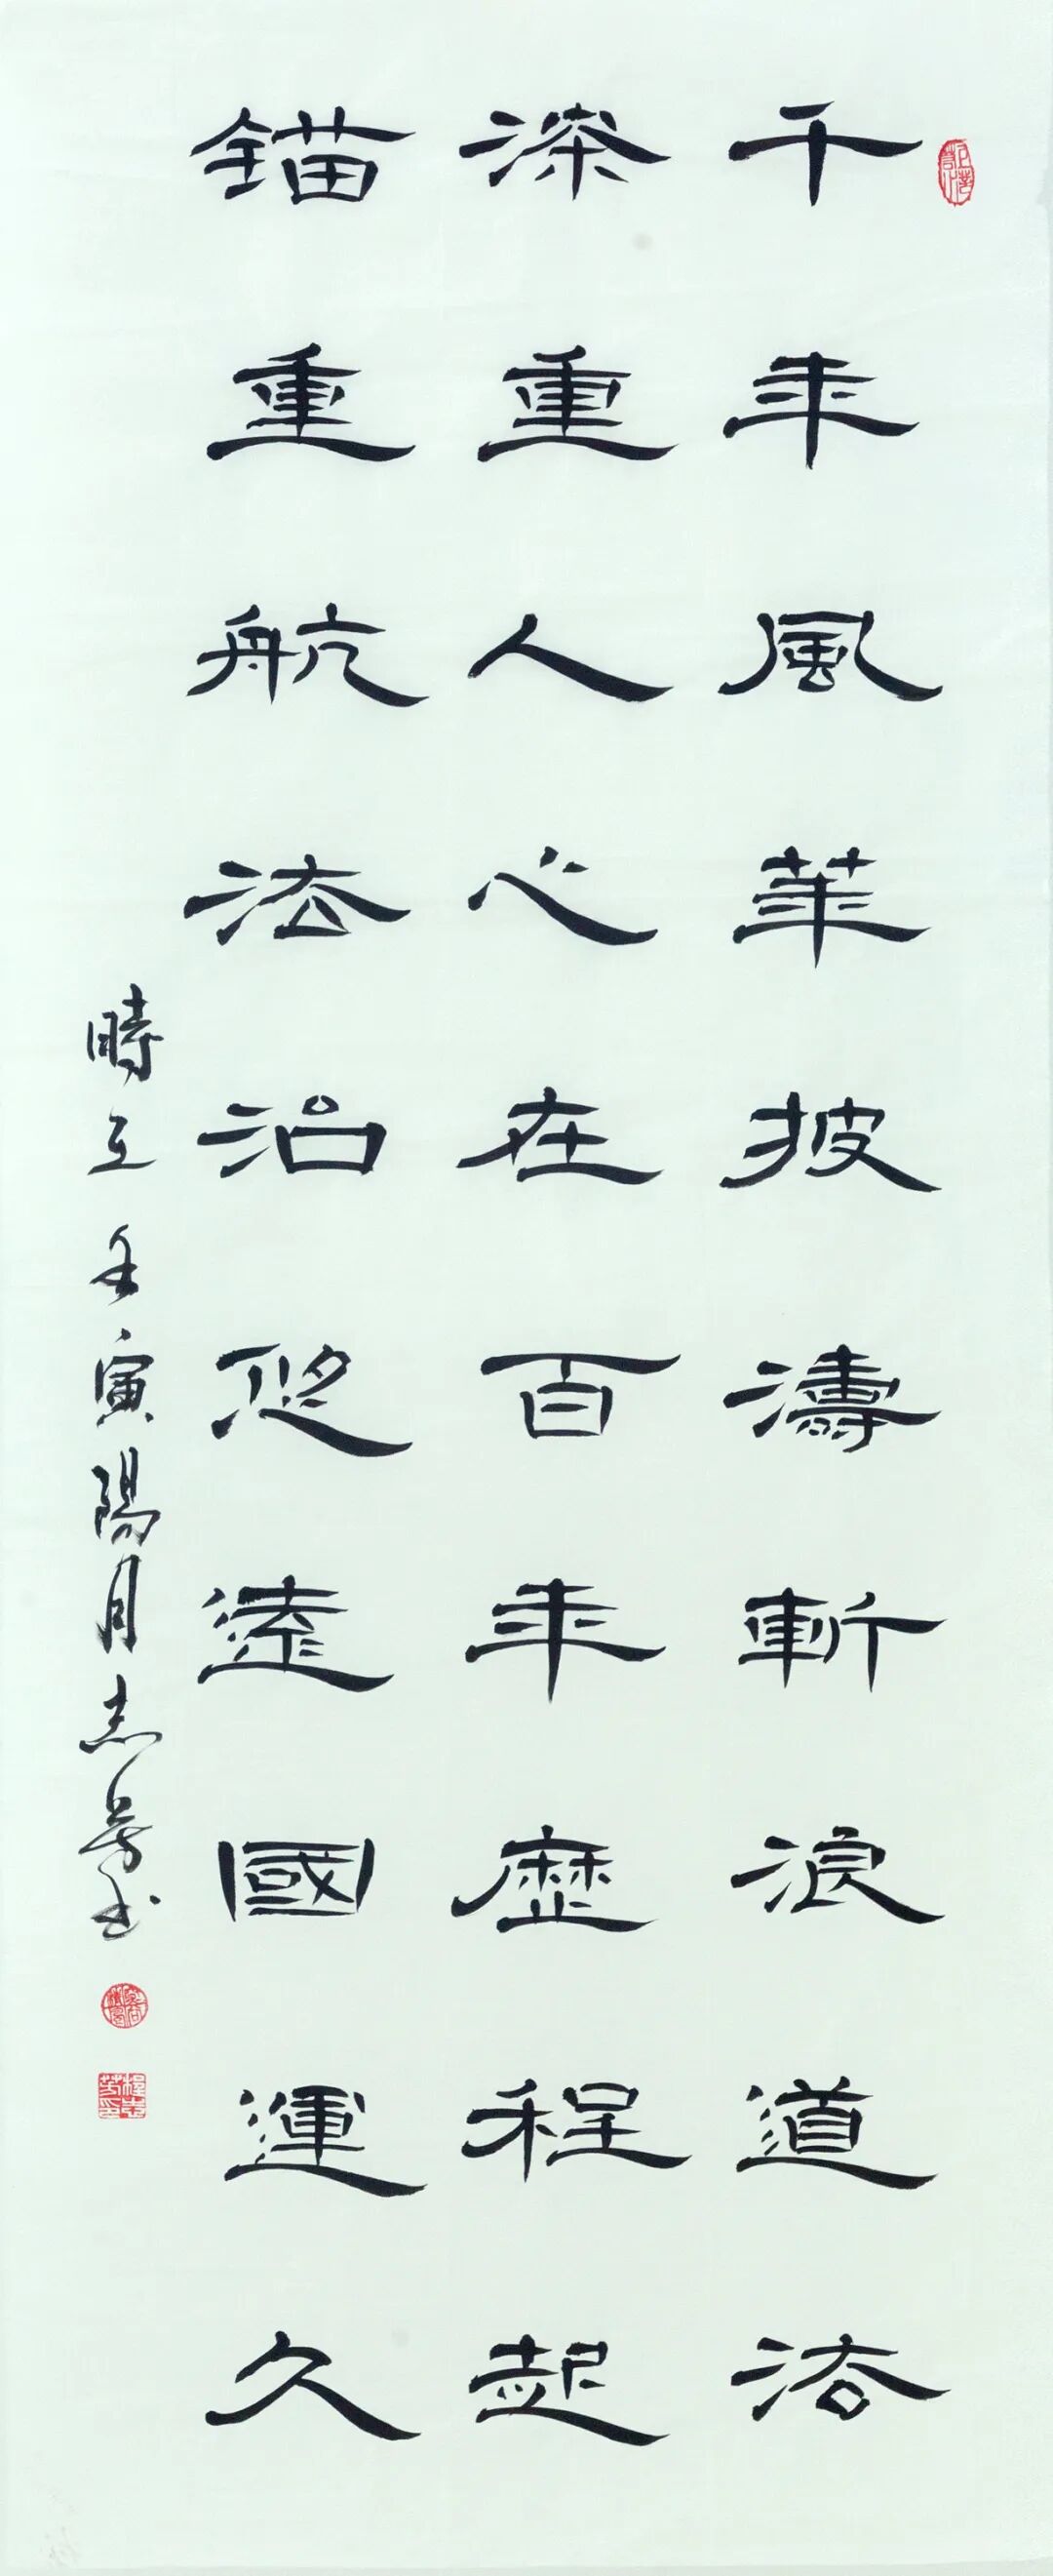 千年風華披濤斬浪道法
深重人心在百年歷程起
錨重航法治悠遠國運久
時在壬寅陽月志芳書